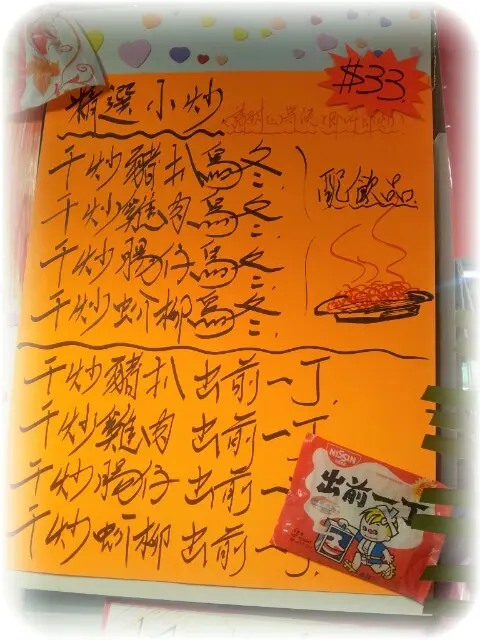 $33
精選小炒
干炒豬扒烏冬
干炒雞肉烏冬
干炒腸仔烏冬
干炒蚧柳烏冬
配飲品
干炒豬扒出前一丁
干炒雞肉出前一丁
干炒腸仔出前一丁
干炒蚧柳出前一丁
NISSIN
出前一丁